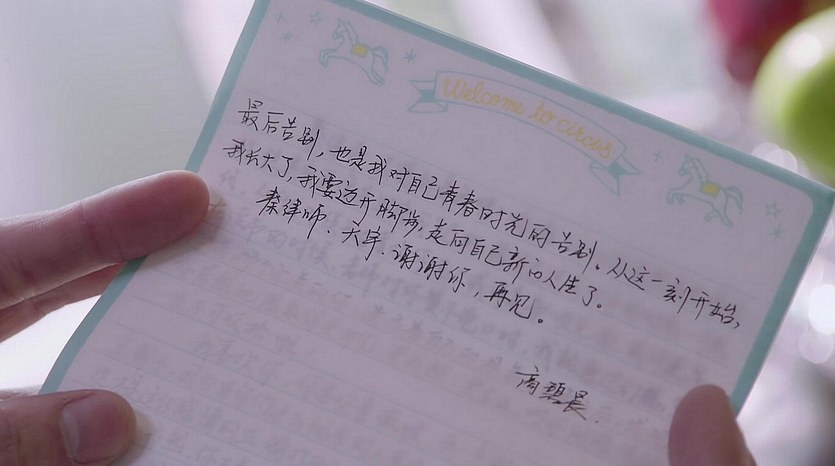 Welcome to circus
最后告别，也是我对自己青春时光的告别。从这一刻开始，
我长大了，我要迈开脚步，走向自己新的人生了。
秦律师、大宇、谢谢你，再见。
高碧晨.